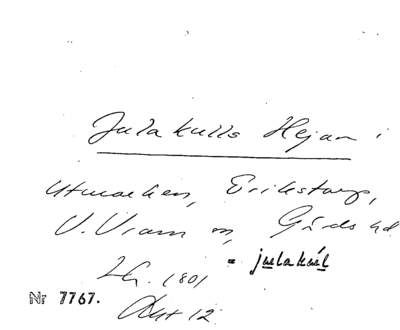 Julakulls Hejan i
Utmarken, Erikstorp,
V. Vram sn, Gärds hd
= julakul
Lh. 1801
Nr 7767.
Akt 12